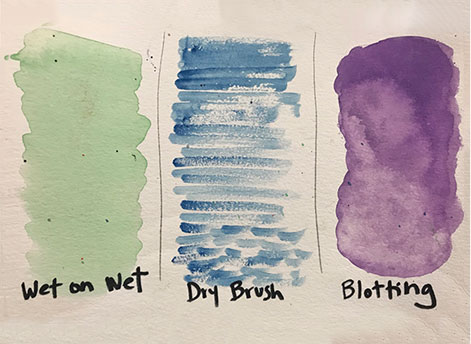 Wet on Wet
Dry Brush
Blotting